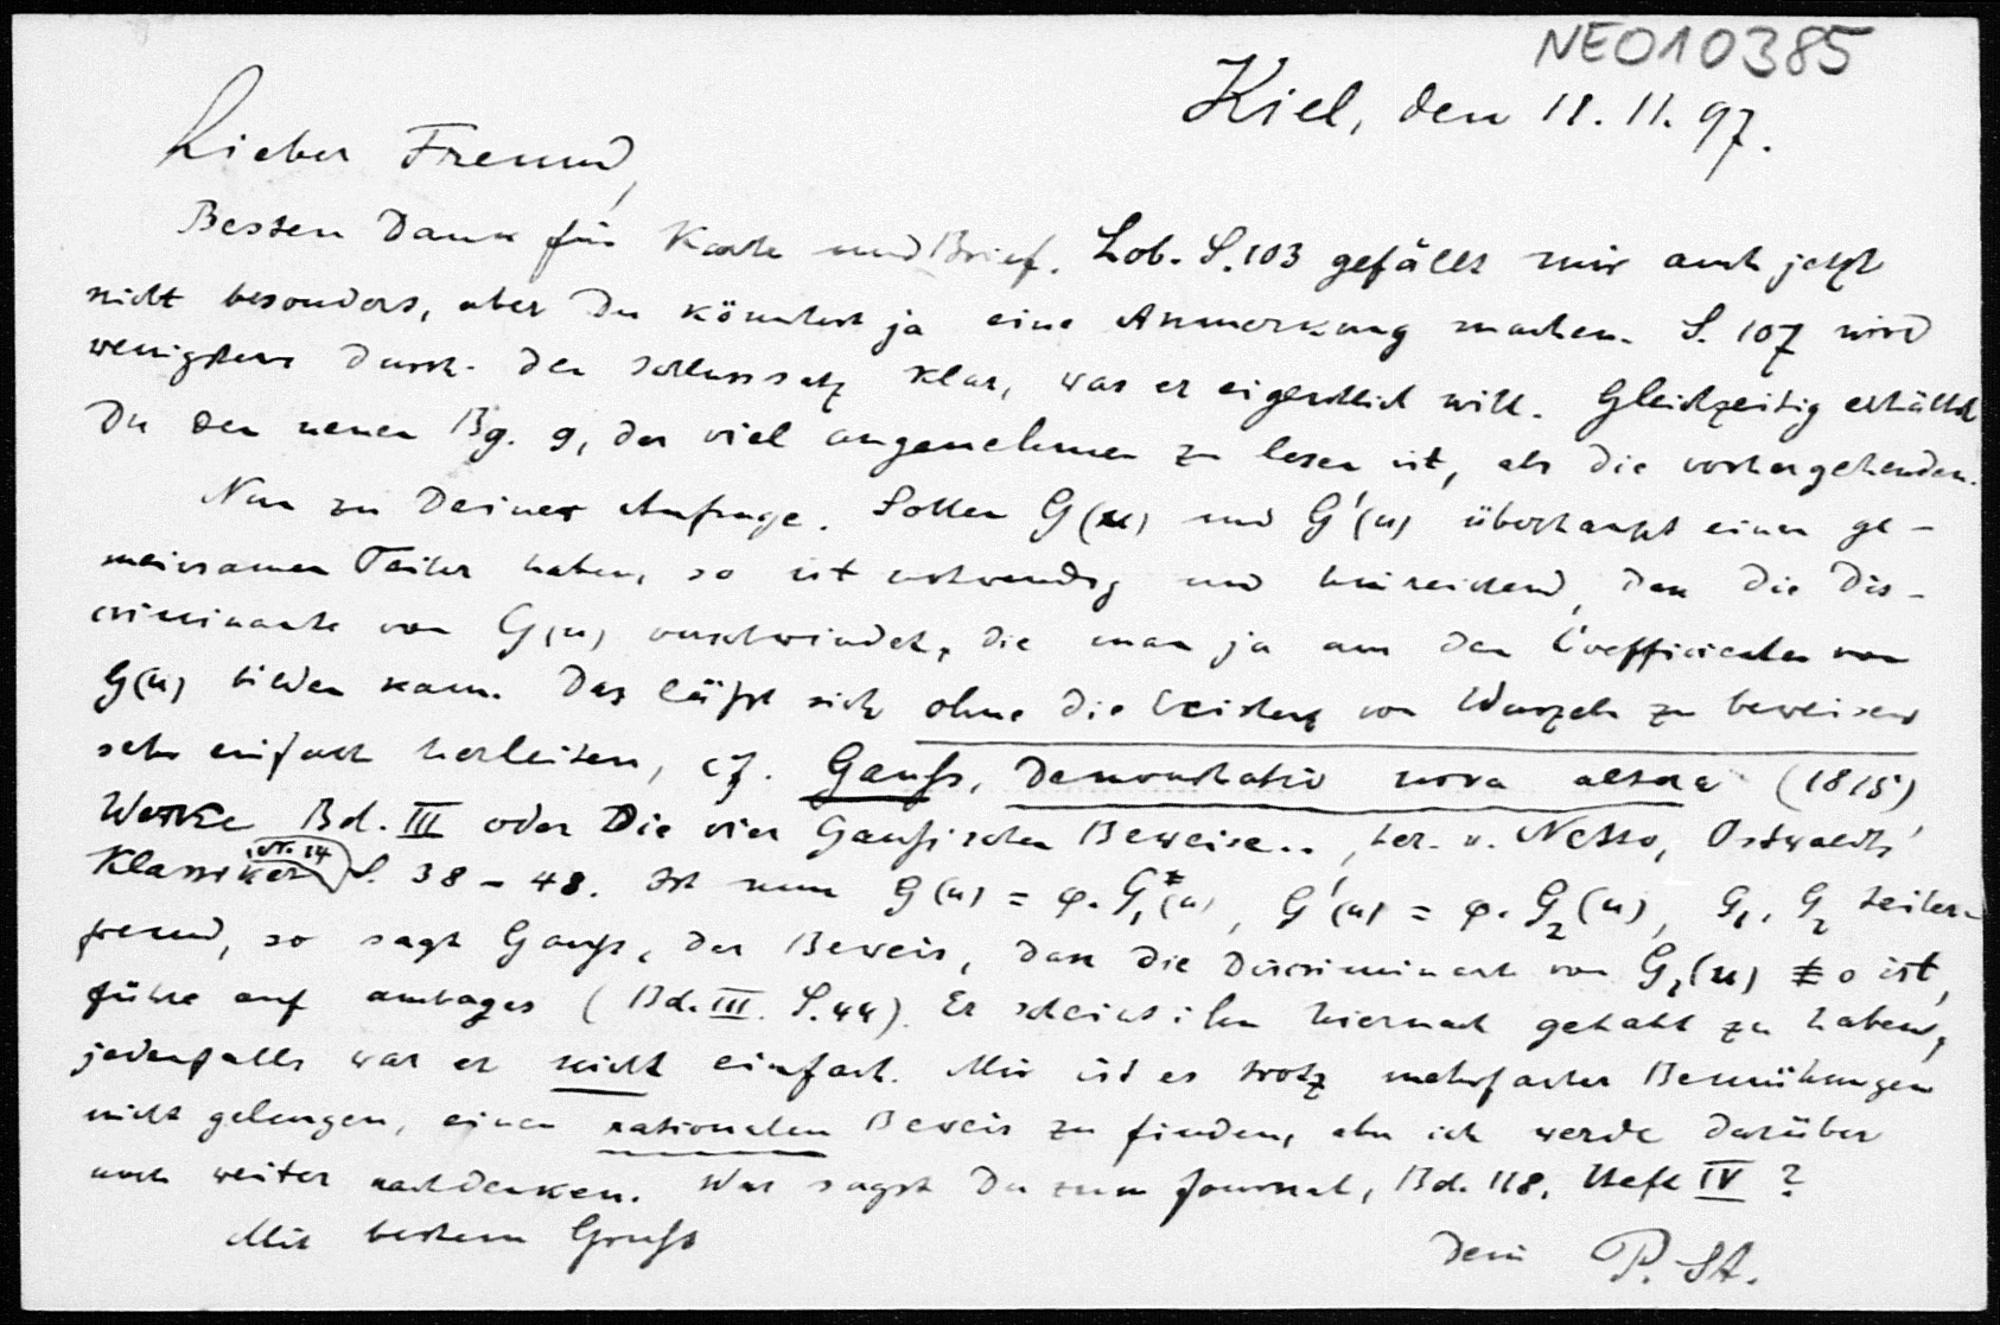 NEO10385
Kiel, den 18. 11. 97.
Lieber Freund,
Besten Dank für Karte und Brief. Lob. S. 103 gefällt mir auch jetzt
nicht besonders, aber Du könntest ja eine Anmerkung machen. S. 107 wird
wenigstens durch den Schlusssatz klar, was er eigentlich will. Gleichzeitig erhältst
Du den neuen Bg. 9, der viel angenehmer zu lesen ist, als die vorhergehenden.
Nun zu Deiner Anfrage. Sollen G(u) und G'(u) überhaupt einen ge-
meinsamen Teiler haben, so ist notwendig und hinreichend, dass die Dis-
criminante von G(u) verschwindet, die man ja aus den Coefficienten von
G(u) bilden kann. Das läßt sich ohne die Existenz von Wurzeln zu beweisen
sehr einfach herleiten, cf. Gauß, Demonstratio nova altera (1815),
Werke Bd. III oder Die vier Gaußischen Beweise.., her. v. Netto, Ostwalds'
Klassiker Nr. 14 S. 38-48. Ist nun G(u) = φ. G₁(u), G'(u) = φ. G₂(u), G₁, G₂ teiler-
fremd, so sagt Gauß, der Beweis, dass die Discriminante von G₁(u) ≠ 0 ist,
führe auf ambages (Bd. III. S. 44). Er scheint ihn hiernach gehabt zu haben,
jedenfalls war er nicht einfach. Mir ist es trotz mehrfacher Bemühungen
nicht gelungen, einen rationalen Beweis zu finden, aber ich werde darüber
noch weiter nachdenken. Was sagst Du zum Journal, Bd. 118, Heft IV?
Mit bestem Gruß
Dein P. St.